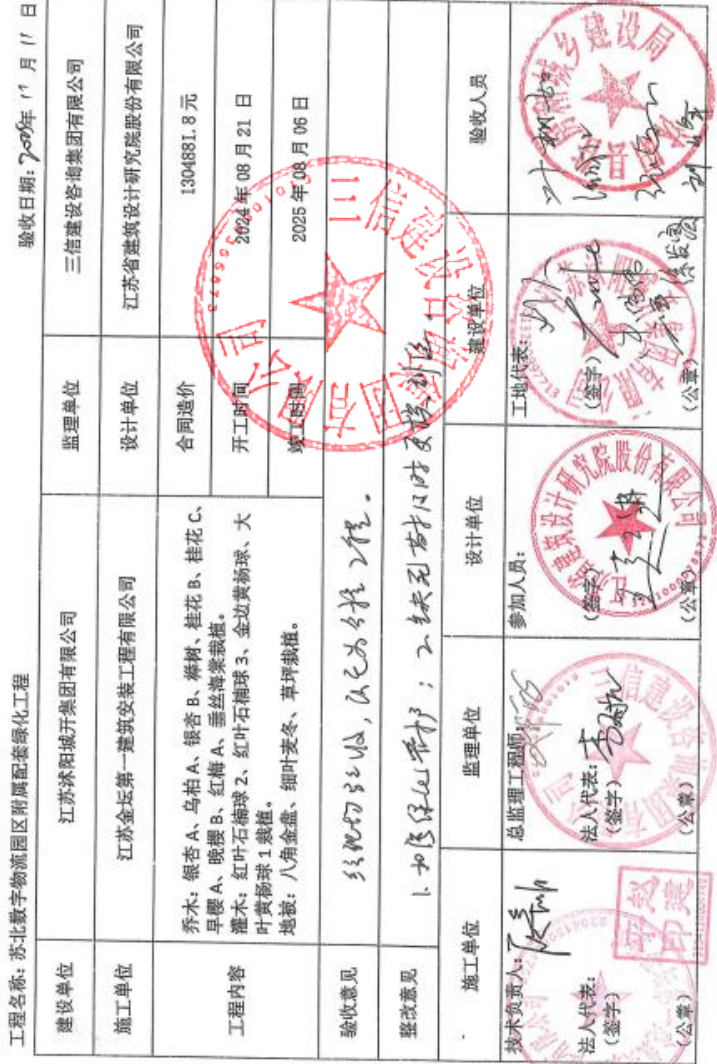 工程名称：苏北数字物流园区附属配套绿化工程 验收日期：2025年11月11日
建设单位 江苏沭阳城开集团有限公司 监理单位 三信建设咨询集团有限公司
施工单位 江苏金坛第一建筑安装工程有限公司 设计单位 江苏省建筑设计研究院股份有限公司
工程内容
乔木：银杏 A、乌桕 A、银杏 B、榉树、桂花 B、桂花 C、
早樱 A、晚樱 B、红梅 A、垂丝海棠栽植。
灌木：红叶石楠球 2、红叶石楠球 3、金边黄杨球、大
叶黄杨球 1 栽植。
地被：八角金盘、细叶麦冬、草坪栽植。
合同造价 1304881.8 元
开工时间 2024 年 08 月 21 日
竣工时间 2025 年 08 月 06 日
验收意见 经现场验收，认定为合格工程。
整改意见 1.加强绿化养护；2.缺死苗木及时更换到位。
施工单位 监理单位 设计单位 建设单位 验收人员
技术负责人：
法人代表：
（签字）
（公章）
总监理工程师：
法人代表：
（签字）
（公章）
参加人员：
（签字）
（公章）
工地代表：
（签字）
（公章）
三信建设咨询集团有限公司
三信建设咨询集团有限公司
省建筑设计研究院股份有限公司
城乡建设局